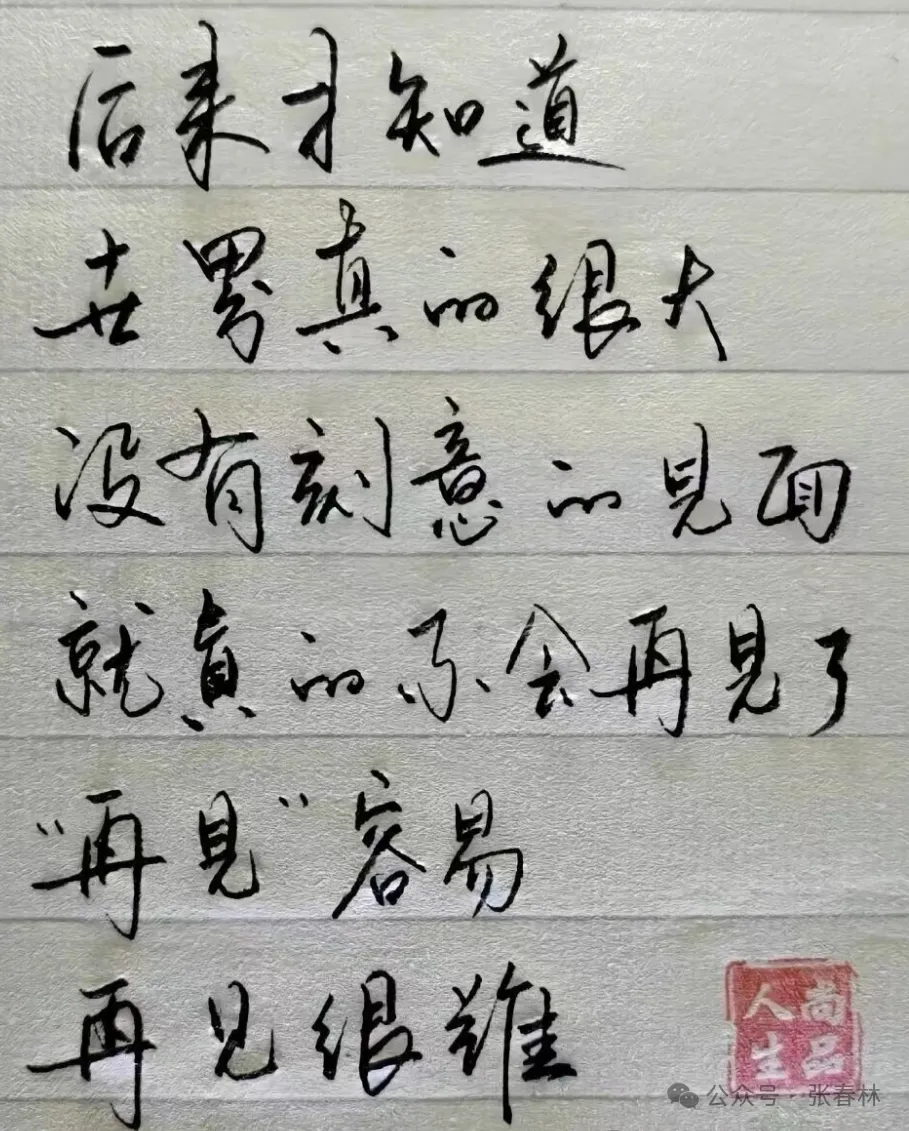 后来才知道
世界真的很大
没有刻意的见面
就真的不会再见了
“再见”容易
再见很难
尚品人生
公众号·张春林